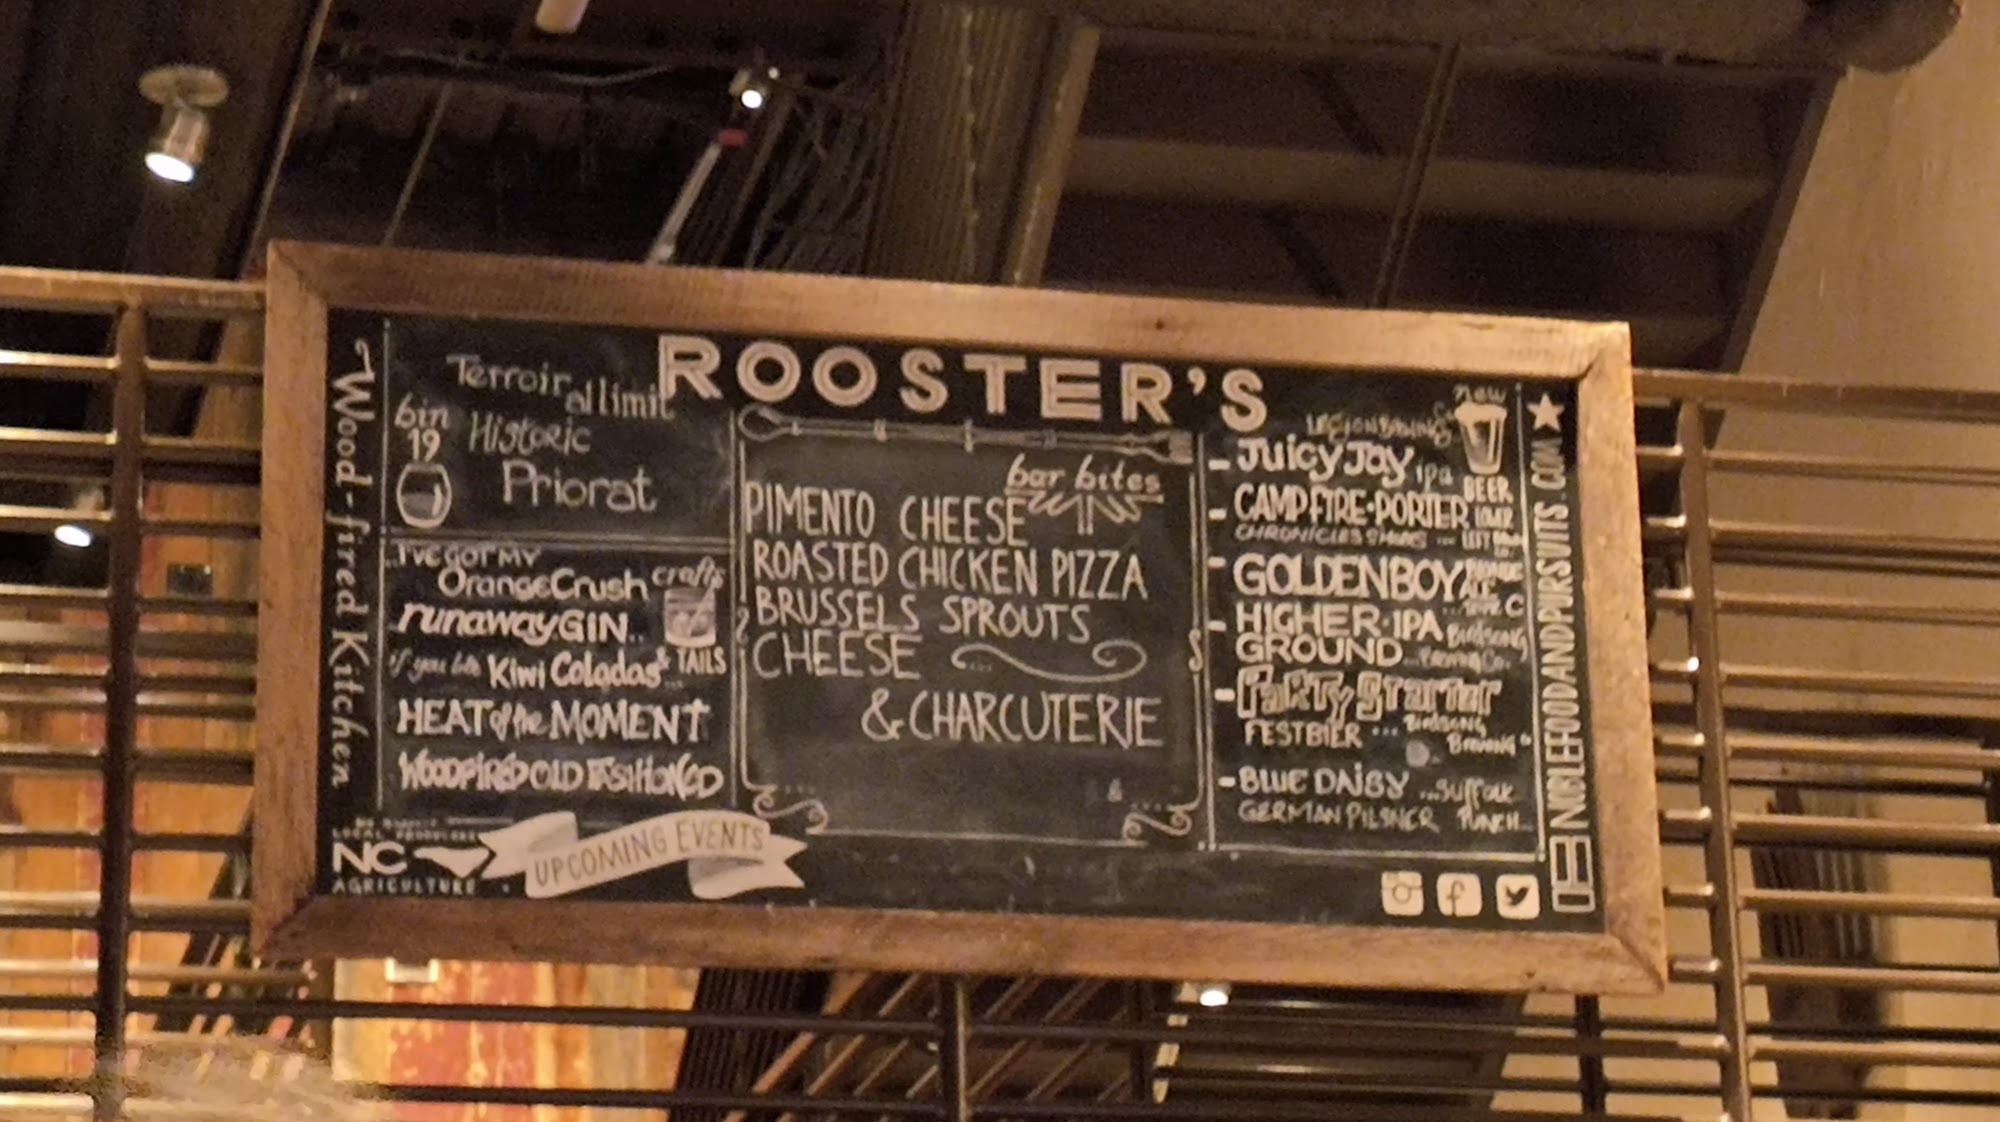 ROOSTER'S
Wood-fired Kitchen
Terroir
al limit
bin
19
Historic
Priorat
...I'VE GOT MY
OrangeCrush
crafts
runaway GIN..
if you like Kiwi Coladas...
& TAILS
HEAT of the MOMENT
WOODFIRED OLD FASHIONED
LOCAL
NC
AGRICULTURE
UPCOMING EVENTS
bar bites
PIMENTO CHEESE
ROASTED CHICKEN PIZZA
BRUSSELS SPROUTS
CHEESE
& CHARCUTERIE
new
BEER
- JUICY JAY ipa
- CAMPFIRE·PORTER
CHRONICLES
- GOLDEN BOY BLONDE
ALE
- HIGHER·IPA Birdsong
GROUND ...Brewing Co.
- PARTY STARTER
FESTBIER ... Birdsong
Brewing Co
- BLUE DAISY ...Suffolk
GERMAN PILSNER PUNCH
NOBLEFOODANDPURSUITS.COM